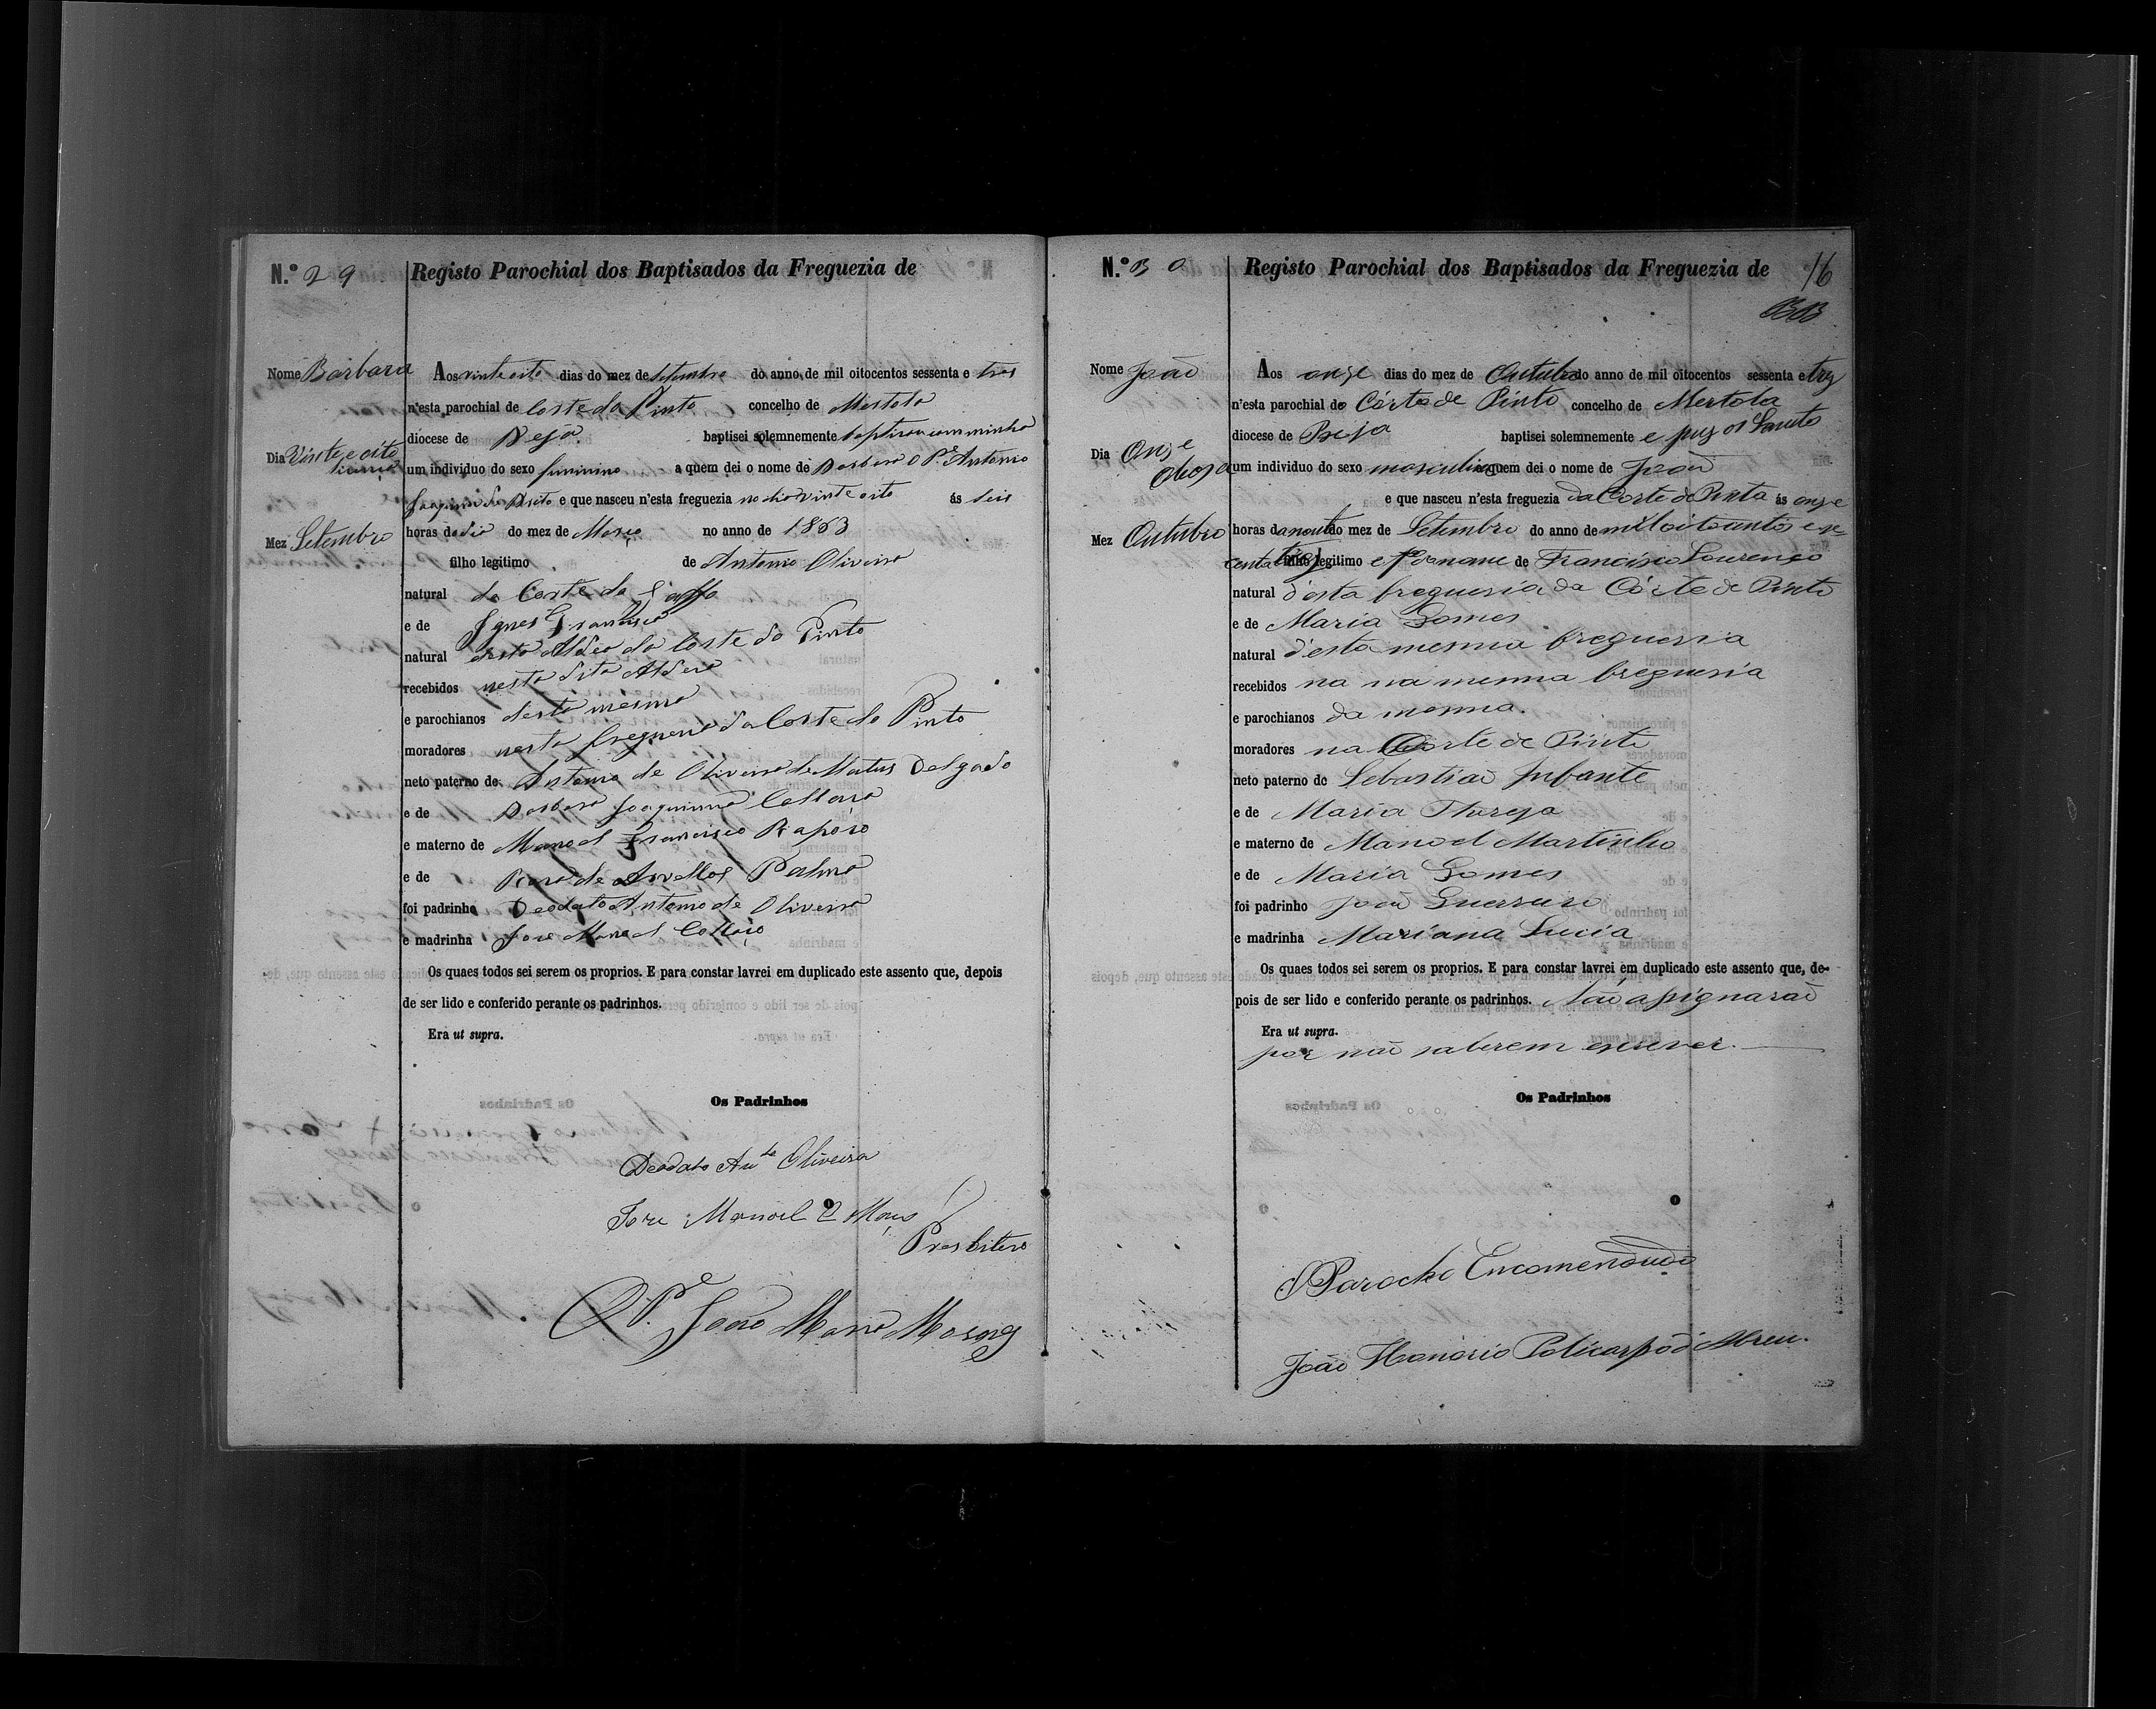 N.º 29
Registo Parochial dos Baptisados da Freguezia de
Nome Barbara
Aos vinte oito dias do mez de Setembro do anno de mil oitocentos sessenta e tres
n'esta parochial de Corte do Pinto concelho de Mertola
diocese de Beja baptisei solemnemente
Dia Vinte e oito
um individuo do sexo feminino a quem dei o nome de Barbara O P.e Antonio
Joaquim de Brito e que nasceu n'esta freguezia no dia vinte oito ás seis
Mez Setembro
horas do dia do mez de Março no anno de 1863
filho legitimo de Antonio Oliveira
natural da Corte do
e de Ignes Francisca
natural desta Aldeia da Corte do Pinto
recebidos nesta dita Aldeia
e parochianos desta mesma
moradores nesta freguesia da Corte do Pinto
neto paterno de Antonio de Oliveira de Matus Delgado
e de Barbara Joaquinna Collaça
e materno de Manoel Francisco Raposo
e de Palma
foi padrinho Deodato Antonio de Oliveira
e madrinha Jose Manoel Collaço
Os quaes todos sei serem os proprios. E para constar lavrei em duplicado este assento que, depois
de ser lido e conferido perante os padrinhos.
Era ut supra.
Os Padrinhos
Deodato An.to Oliveira
Jose Manoel
Presbitero
O P.e João Maria
N.º 30
Registo Parochial dos Baptisados da Freguezia de
16
Nome João
Aos onze dias do mez de Outubro do anno de mil oitocentos sessenta e trez
n'esta parochial de Córte de Pinto concelho de Mertola
diocese de Beja baptisei solemnemente e puz os Santos
Dia Onze
um individuo do sexo masculino a quem dei o nome de João
e que nasceu n'esta freguezia da Corte de Pinto ás onze
Mez Outubro
horas da noute do mez de Setembro do anno de mil oitocentos e se-
centa trez filho legitimo e de Francisco Lourenço
natural d'esta freguesia da Córte de Pinto
e de Maria Gomes
natural d'esta mesma freguesia
recebidos na na mesma freguesia
e parochianos da mesma.
moradores na Corte de Pinto
neto paterno de Sebastião Infante
e de Maria Thareja
e materno de Manoel Martinho
e de Maria Gomes
foi padrinho João Guerreiro
e madrinha Mariana Lucia
Os quaes todos sei serem os proprios. E para constar lavrei em duplicado este assento que, de-
pois de ser lido e conferido perante os padrinhos. Não assignarão
Era ut supra.
por não saberem escrever.
Os Padrinhos
O Parocho Encomendado
João Honorio Policarpo d'Abreu.